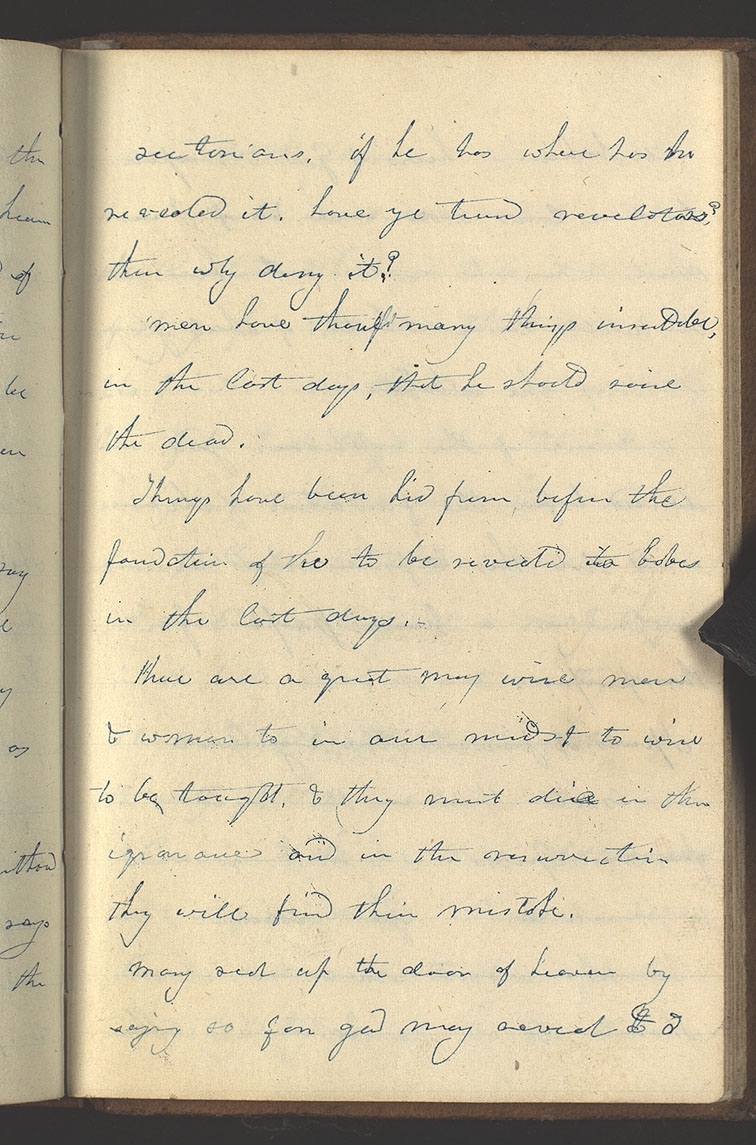 the
heaven
of
be
en
ray
y
as
says
the
sectorians. if he has where has he
revealed it. have ye turnd revelators?
then why deny it?
men have thought many things insensible,
in the last days, that he should raise
the dead.
Things have been hid from before the
foundtion of the to be reveald to babes
in the last days.-
there are a great may wise men
& women to in our midst to wise
to be taught. & they must die in ther
ignorance and in the resurrection
they will find their mistake.
many seal up the door of heaven by
saying so far god may reveal & I